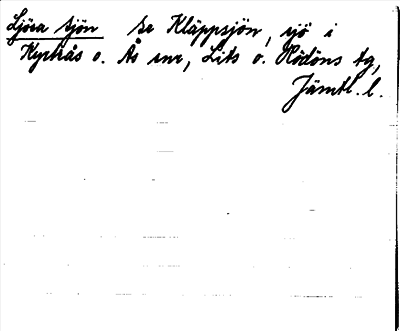 Ljöra sjön se Kläppsjön, sjö i
Kyrkås o. Ås snr, Lits o. Rödöns tg,
Jämtl. l.